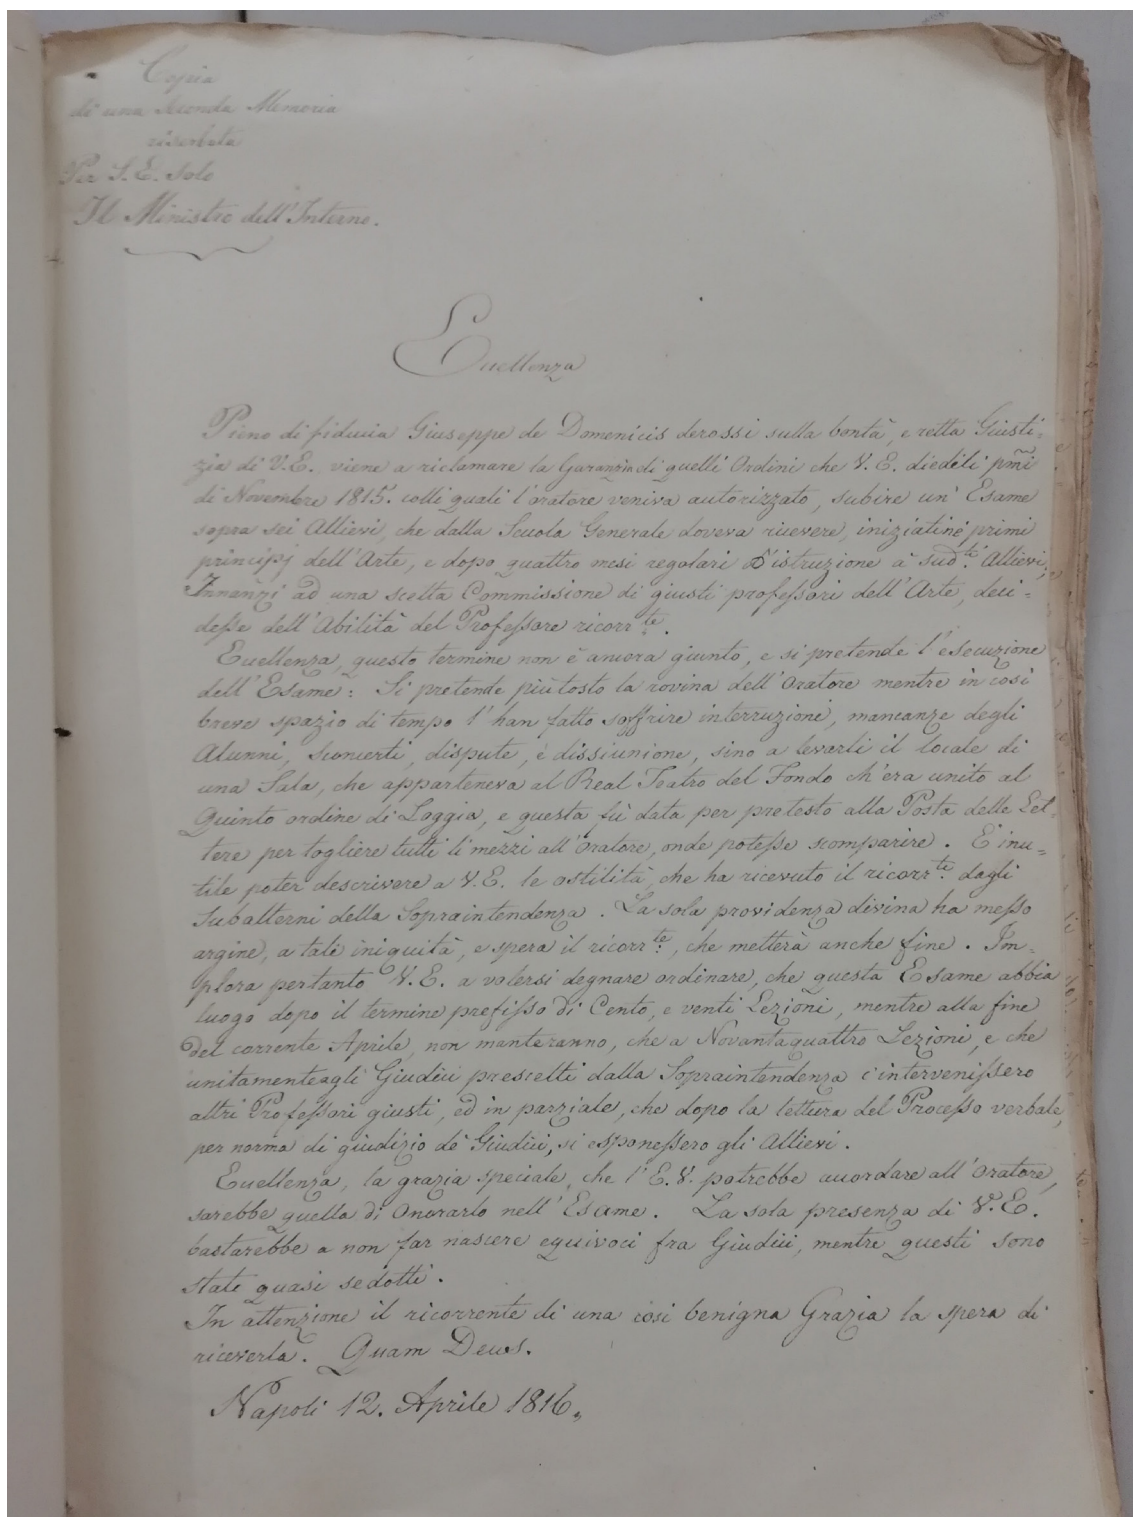 Copia
di una seconda Memoria
riserbata
Per S. E. Solo
Il Ministro dell'Interno.
Eccellenza
Pieno di fiducia Giuseppe de Domenicis derossi sulla bontà, e retta Giusti-
zia di V.E. viene a riclamare la Garanzia di quelli Ordini che V. E. diedeli pmi
di Novembre 1815. colli quali l'oratore veniva autorizzato, subire un' Esame
sopra sei Allievi, che dalla Scuola Generale doveva ricevere, iniziati né primi
principj dell'Arte, e dopo quattro mesi regolari d'istruzione à sud.ti Allievi,
Innanzi ad una scelta Commissione di giusti professori dell'Arte, deci-
desse dell'Abilità del Professore ricorr.te.
Eccellenza, questo termine non è ancora giunto, e si pretende l'esecuzione
dell'Esame: Si pretende più tosto la rovina dell'Oratore mentre in così
breve spazio di tempo l'han fatto soffrire interruzioni, mancanze degli
Alunni, sconcerti, dispute, è dissiunione, sino a levarli il locale di
una Sala, che apparteneva al Real Teatro del Fondo ch'era unito al
Quinto ordine di Loggia, e questa fù data per pretesto alla Posta delle Let-
tere per togliere tutti li mezzi all'oratore, onde potesse scomparire. E' inu-
tile poter descrivere a V.E. le ostilità, che ha ricevuto il ricorr.te dagli
Subalterni della Sopraintendenza. La sola providenza divina ha messo
argine, a tale iniquità, e spera il ricorr.te, che metterà anche fine. Im-
plora pertanto V.E. a volersi degnare ordinare, che questa Esame abbia
luogo dopo il termine prefisso di Cento, e venti Lezioni, mentre alla fine
del corrente Aprile, non manteranno, che a Novantaquattro Lezioni, e che
unitamente agli Giudici prescelti dalla Sopraintendenza c'intervenissero
altri Professori giusti, ed in parziale, che dopo la lettura del Processo verbale,
per norma di giudizio de' Giudici, si esponessero gli Allievi.
Eccellenza, la grazia speciale, che l'E.V. potrebbe accordare all'Oratore,
sarebbe quella di Onorarlo nell'Esame. La sola presenza di V.E.
bastarebbe a non far nascere equivoci fra Giudici, mentre questi sono
stati quasi sedotti.
In attenzione il ricorrente di una così benigna Grazia la spera di
riceverla. Quam Deus.
Napoli 12. Aprile 1816.